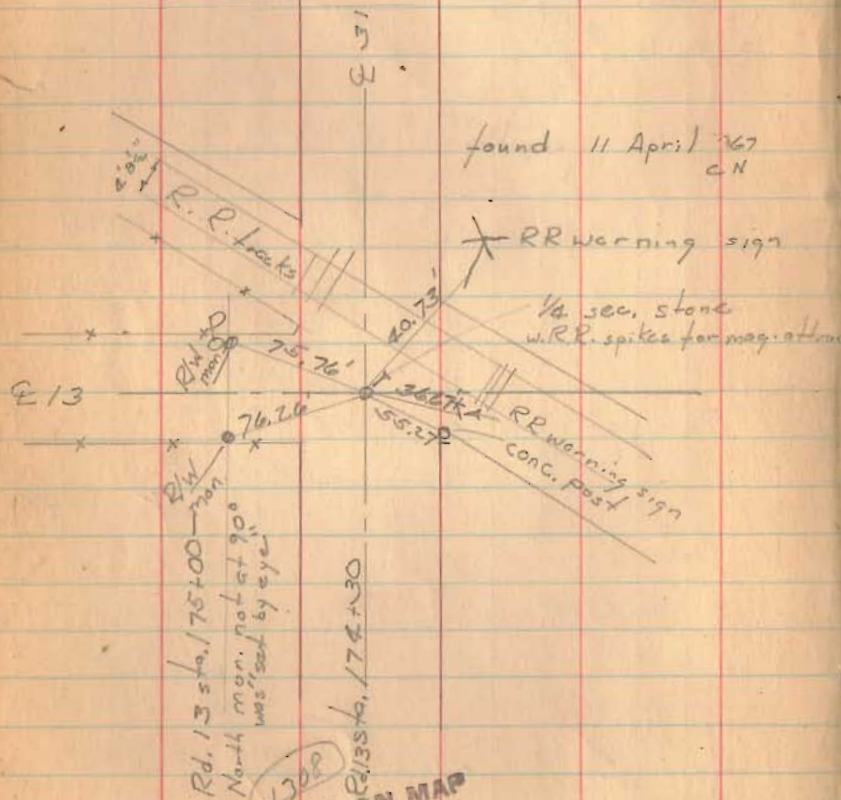 ℄ 31
found 11 April '67
C N
4' 8½"
R. R. tracks
RR warning sign
40.73'
1/4 sec. stone
w. R.R. spikes for mag. attrac
75.76'
R/W
mon.
℄ 13
36.27'
76.26'
55.27
RR warning sign
conc. post
R/W
mon.
Rd. 13 sta. 175+00
North mon. not at 90°
was "set by eye"
Rd 13 sta. 174+30
1308
N MAP